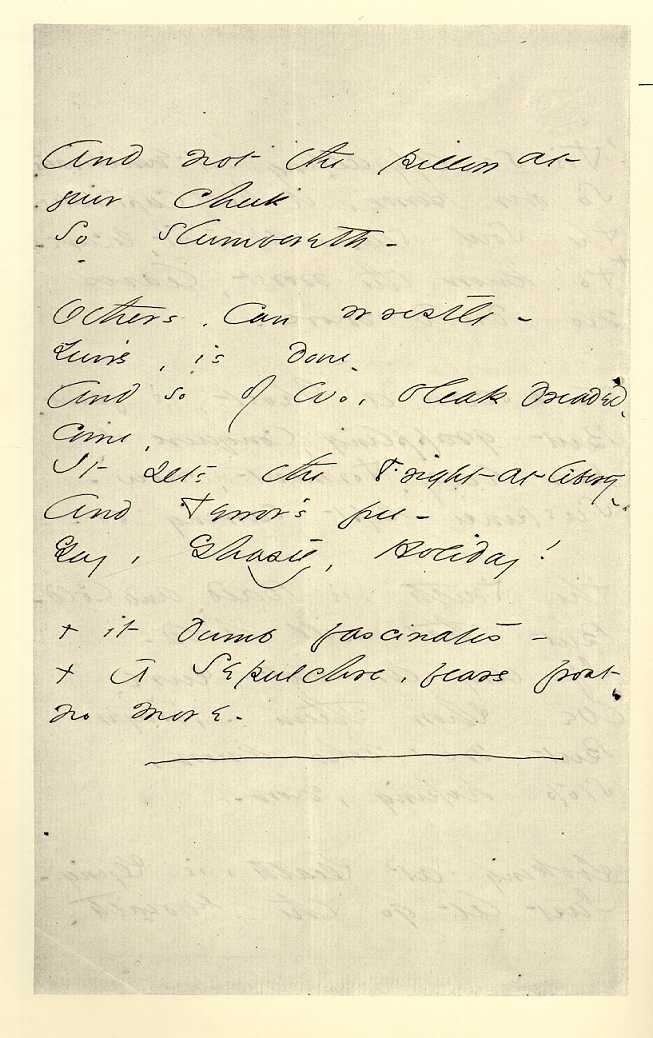 And not the pillow at
your Cheek
So Slumbereth -
Others, Can wrestle -
Yours, is done
And so of Wo, bleak dreaded,
come,
It sets the Fright at liberty -
And Terror's free -
Gay, Ghastly, Holiday!
+ it dumb fascinates -
+ A Sepulchre, fears frost
no more -